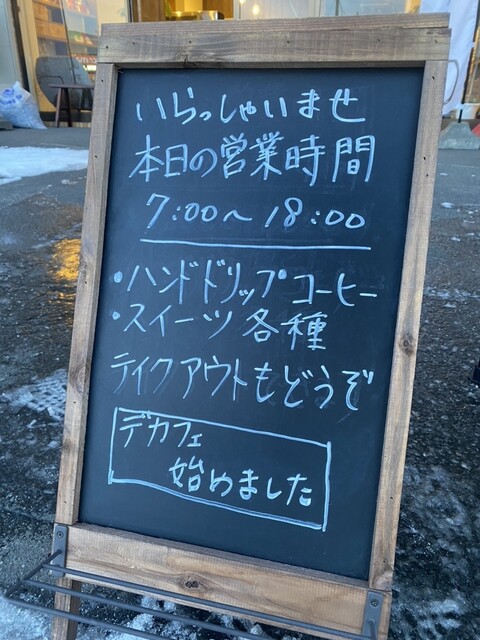 いらっしゃいませ
本日の営業時間
7:00～18:00
・ハンドドリップコーヒー
・スイーツ各種
テイクアウトもどうぞ
デカフェ
始めました